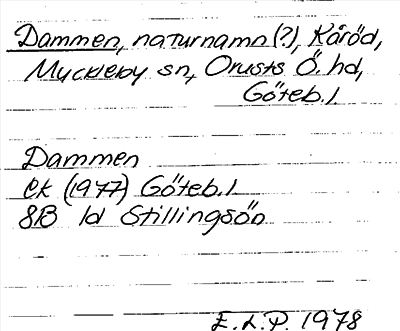 Dammen, naturnamn (?), Kåröd,
Myckleby sn, Orusts Ö. hd,
Göteb. l.
Dammen
ek (1977) Göteb. l
8B 1d Stillingsön
E.L.P. 1978